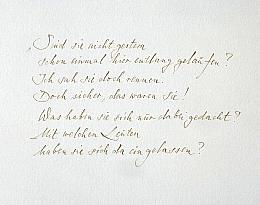 „Sind sie nicht gestern
schon einmal hier entlang gelaufen?
Ich sah sie doch rennen.
Doch sicher, das waren sie!
Was haben sie sich nur dabei gedacht?
Mit welchen Leuten
haben sie sich da eingelassen?